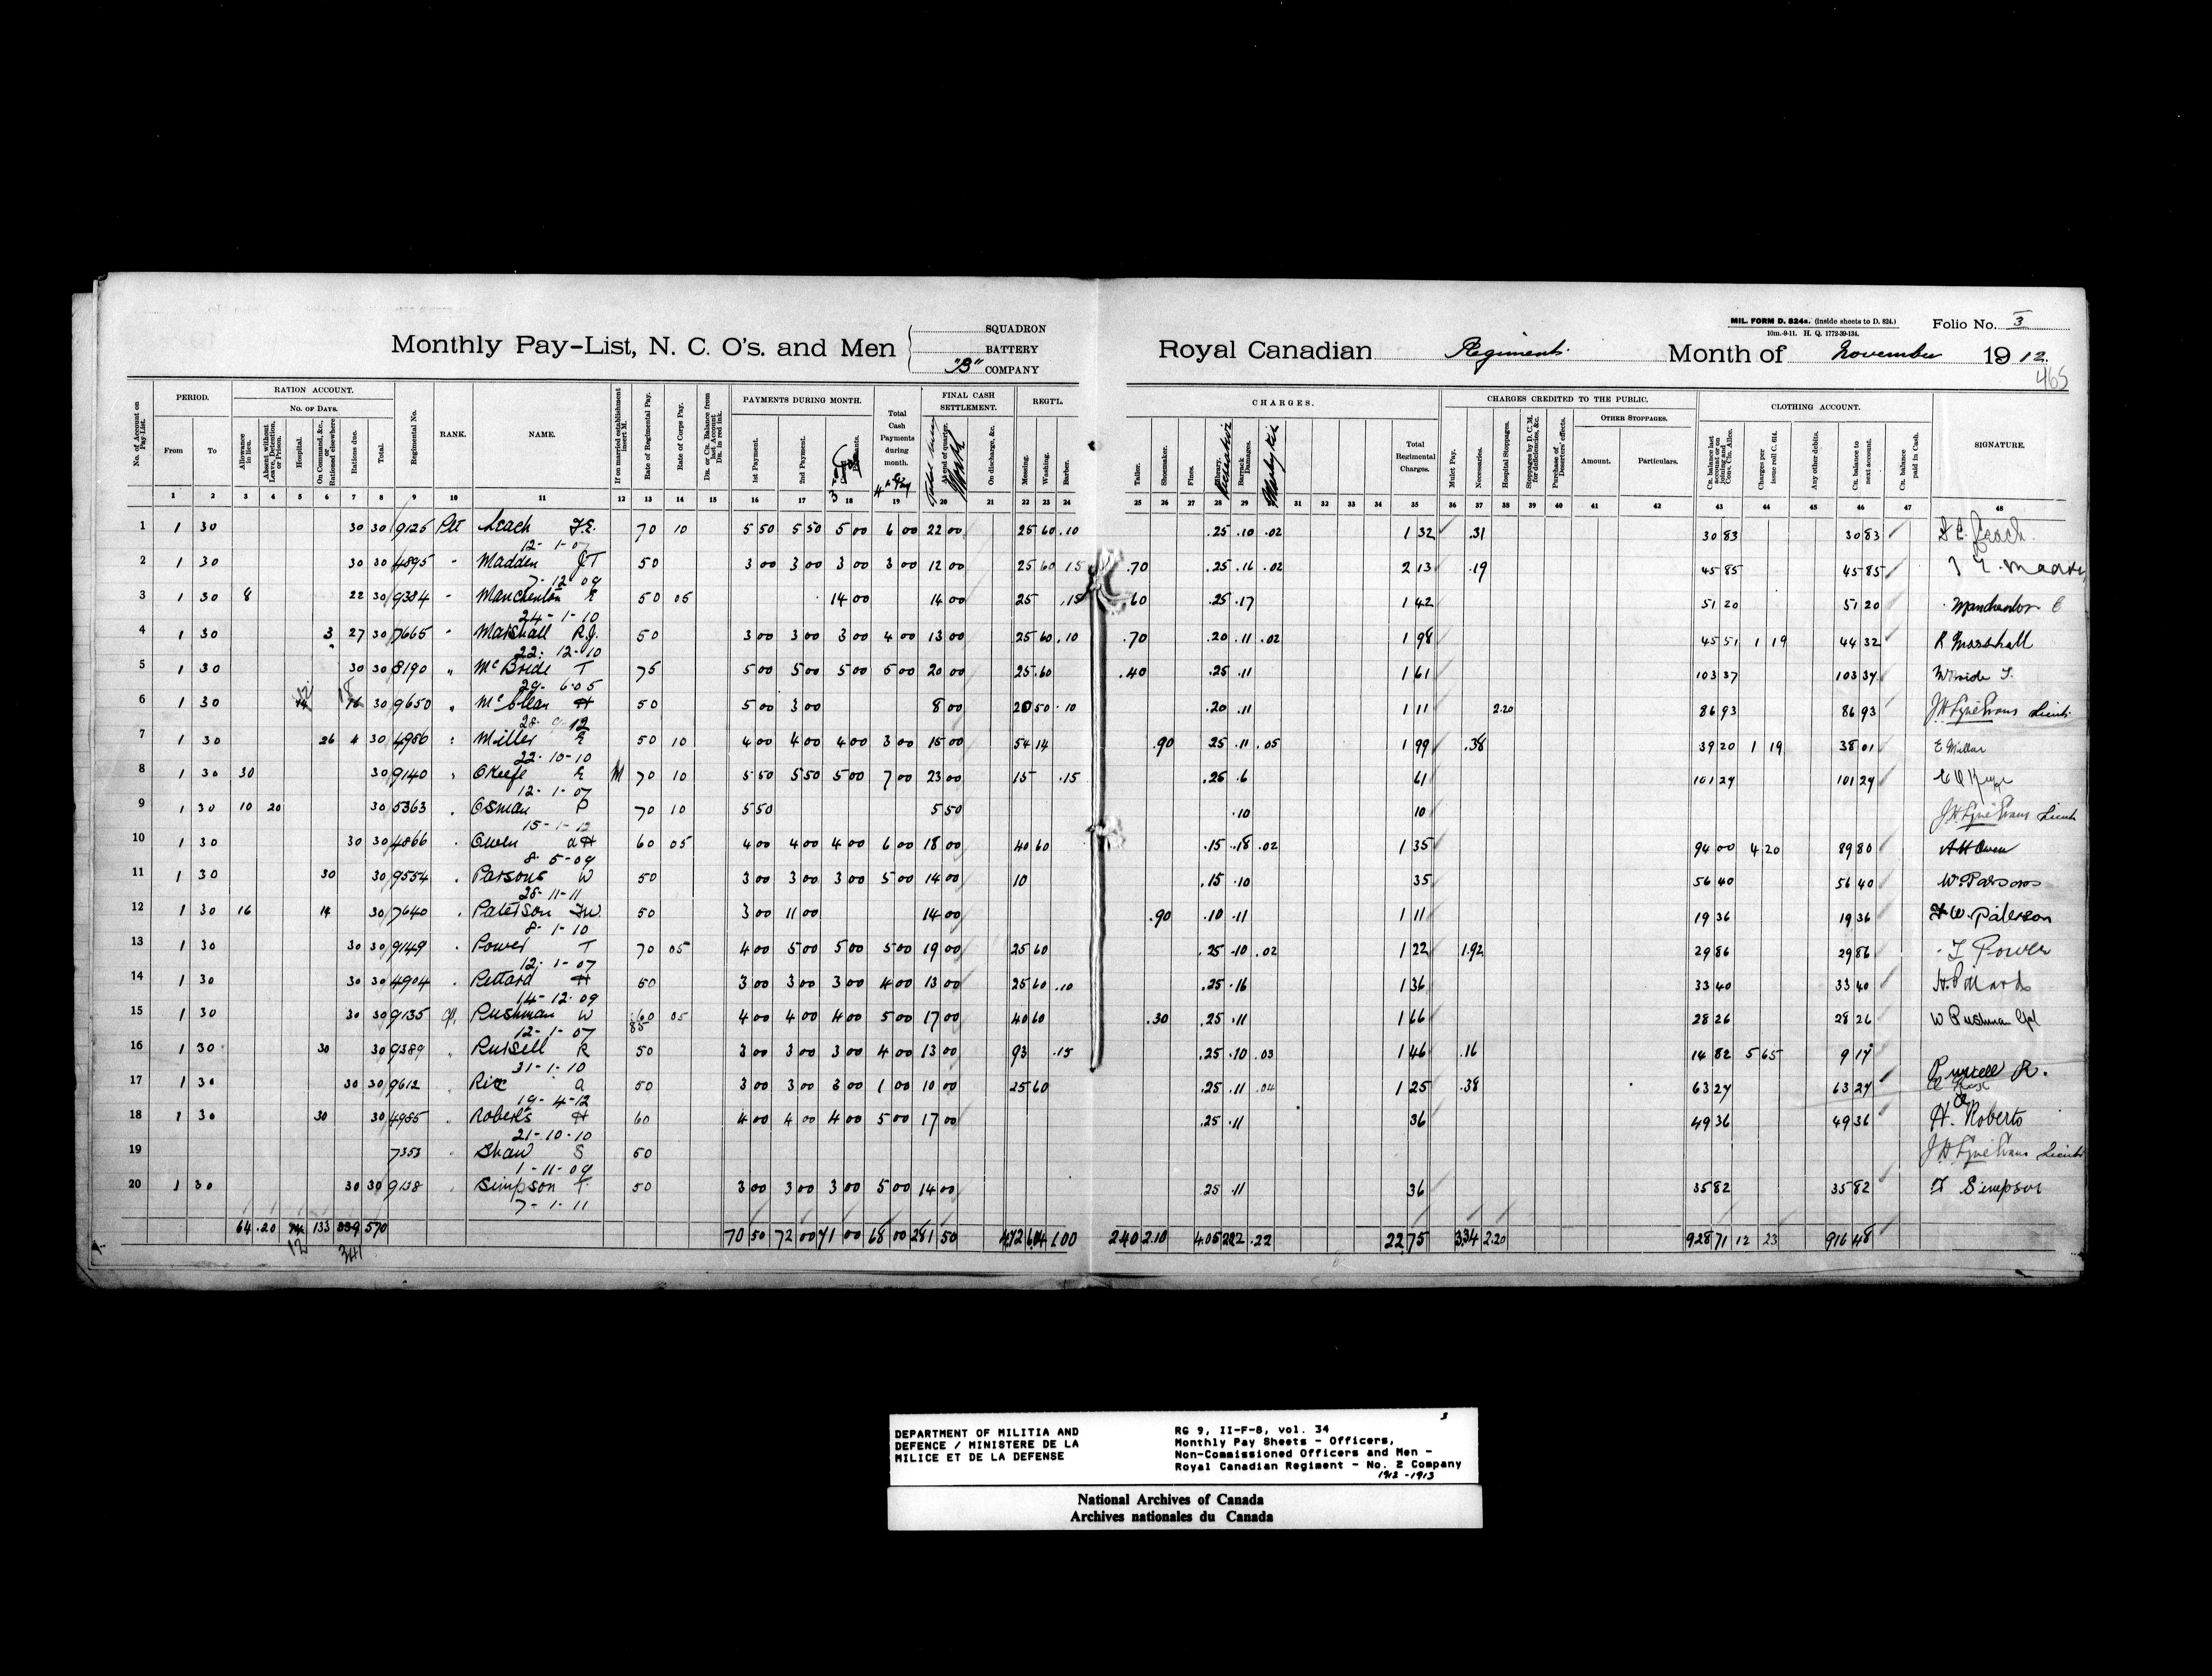 MIL. FORM D. 824a. (inside sheets to D. 824.)
10m.-9-11. H. Q. 1772-39-134.
Folio No. 3
Monthly Pay-List, N. C. O's. and Men
SQUADRON
BATTERY
"B" COMPANY
Royal Canadian Regiment. Month of November 1912.
465
No. of Account on Pay-List. PERIOD. RATION ACCOUNT. Regimental No. RANK. NAME. If on married establishment insert M. Rate of Regimental Pay. Rate of Corps Pay. Dr. or Cr. Balance from last Account Dr. in red ink. PAYMENTS DURING MONTH. Total Cash Payments during month. FINAL CASH SETTLEMENT. REGT'L CHARGES. CHARGES CREDITED TO THE PUBLIC. CLOTHING ACCOUNT. SIGNATURE.
From To No. OF DAYS. Allowance in lieu. Absent without Leave, Detention, or Prison. Hospital. On Command, &c., or Rationed elsewhere Rations due. Total.
1st Payment. 2nd Payment. At end of quarter. On discharge, &c. Messing. Washing. Barber.
Tailor. Shoemaker. Fines. Library. Barrack Damages. Total Regimental Charges.
Mulct Pay. Necessaries. Hospital Stoppages. Stoppages by D. C. M. for deficiencies, &c. Purchase of Deserters' effects. OTHER STOPPAGES. Amount. Particulars.
Cr. balance last account or on joining and Conv. Clo. Allce. Charges per issue roll C. 614. Any other debits. Cr. balance to next account. Cr. balance paid in Cash.
1 2 3 4 5 6 7 8 9 10 11 12 13 14 15 16 17 18 19 20 21 22 23 24 25 26 27 28 29 31 32 33 34 35 36 37 38 39 40 41 42 43 44 45 46 47 48
1 1 30 30 30 9125 Pte Leach F.E. 70 10 5 50 5 50 5 00 6 00 22 00 25 60 .10 .25 .10 .02 1 32 .31 30 83 30 83
12-1-07
2 1 30 30 30 4895 " Madden J.T 50 3 00 3 00 3 00 3 00 12 00 25 60 15 .70 .25 .16 .02 2 13 .19 45 85 45 85
7-12-09
3 1 30 8 22 30 9384 " Manchenton E 50 05 14 00 14 00 25 .15 60 .25 .17 1 42 51 20 51 20
24-1-10
4 1 30 3 27 30 7665 " Marshall R.J. 50 3 00 3 00 3 00 4 00 13 00 25 60 .10 .70 .20 .11 .02 1 98 45 51 1 19 44 32 R Marshall
22-12-10
5 1 30 30 30 8190 " McBride T 75 5 00 5 00 5 00 5 00 20 00 25.60 .40 .25 .11 1 61 103 37 103 37
29-6-05
6 1 30 12 18 30 9650 " McClean H 50 5 00 3 00 8 00 20 50 .10 .20 .11 1 11 2.20 86 93 86 93 Lieut.
28-9-12
7 1 30 26 4 30 4986 " Miller E 50 10 4 00 4 00 4 00 3 00 15 00 54 14 .90 25 .11 .05 1 99 .38 39 20 1 19 38 01 E Miller
22-10-10
8 1 30 30 30 9140 " OKeefe E M 70 10 5 50 5 50 5 00 7 00 23 00 15 .15 .25 .6 61 101 27 101 27
12-1-07
9 1 30 10 20 30 5363 " Osman P 70 10 5 50 5 50 .10 10 Lieut
15-1-12
10 1 30 30 30 4866 " Owen A H 60 05 4 00 4 00 4 00 6 00 18 00 40 60 .15 .18 .02 1 35 94 00 4 20 89 80 A H Owen
8-5-09
11 1 30 30 30 9554 " Parsons W 50 3 00 3 00 3 00 5 00 14 00 10 .15 .10 35 56 40 56 40 W Parsons
25-11-11
12 1 30 16 14 30 7640 " Paterson F.W. 50 3 00 11 00 14 00 .90 .10 .11 1 11 19 36 19 36 F W. Paterson
8-1-10
13 1 30 30 30 9149 " Power T 70 05 4 00 5 00 5 00 5 00 19 00 25 60 .25 .10 .02 1 22 1.92 29 86 29 86 T Power
12-1-07
14 1 30 30 30 4904 " Pettard H 50 3 00 3 00 3 00 4 00 13 00 25 60 .10 .25 .16 1 36 33 40 33 40
14-12-09
15 1 30 30 30 9135 Cpl. Pushman W 60 05 4 00 4 00 4 00 5 00 17 00 40 60 .30 .25 .11 1 66 28 26 28 26 W Pushman Cpl
85
12-1-07
16 1 30 30 30 9389 " Russell R 50 3 00 3 00 3 00 4 00 13 00 93 .15 .25 .10 .03 1 46 .16 14 82 5 65 9 17 Russell R.
31-1-10
17 1 30 30 30 9612 " Rix A 50 3 00 3 00 3 00 1 00 10 00 25 60 .25 .11 .04 1 25 .38 63 27 63 27
19-4-12
18 1 30 30 30 4985 " Roberts H 60 4 00 4 00 4 00 5 00 17 00 .25 .11 36 49 36 49 36 H. Roberts
21-10-10
19 7353 " Shaw S 50 Lieut
1-11-09
20 1 30 30 30 9138 " Simpson T. 50 3 00 3 00 3 00 5 00 14 00 25 .11 36 35 82 35 82 T Simpson
7-1-11
64 .20 133 339 570 70 50 72 00 71 00 68 00 281 50 4.72 6.04 1.00 2 40 2.10 4.05 2.22 .22 22 75 3.34 2.20 928 71 12 23 916 48
12 341
3
DEPARTMENT OF MILITIA AND
DEFENCE / MINISTERE DE LA
MILICE ET DE LA DEFENSE
RG 9, II-F-8, vol. 34
Monthly Pay Sheets - Officers,
Non-Commissioned Officers and Men -
Royal Canadian Regiment - No. 2 Company
1912-1913
National Archives of Canada
Archives nationales du Canada